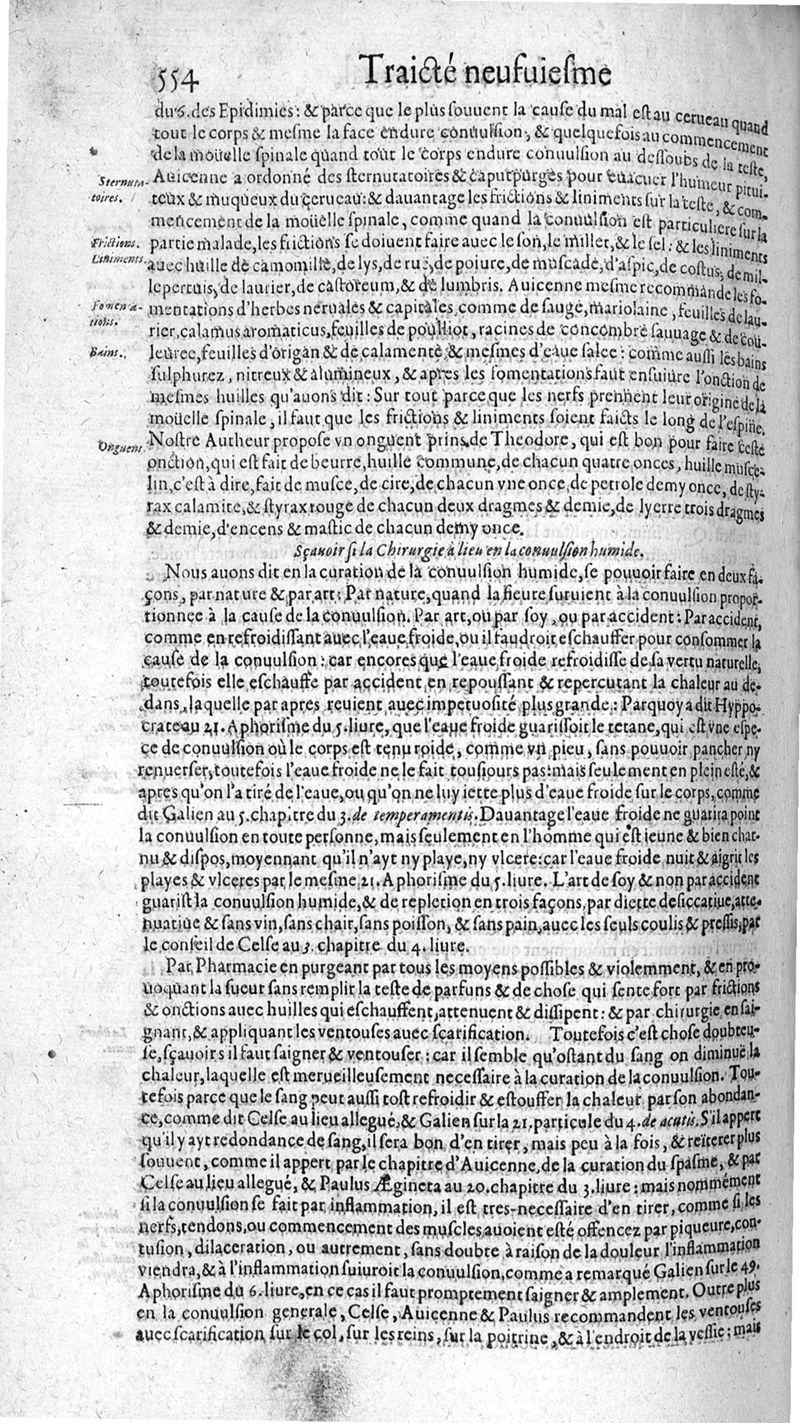 554 Traicté neufuiesme
du 6. des Epidimies: & parce que le plus souuent la cause du mal est au cerueau quand
tout le corps & mesme la face endure conuulsion, & quelquefois au commencement
de la moüelle spinale quand tout le corps endure conuulsion au dessoubs de la teste,
Sternuta-
toires.
Auicenne a ordonné des sternutatoires & caputpurges pour euacuer l'humeur pitui-
teux & muqueux du cerueau: & dauantage les frictions & liniments sur la teste, & com-
mencement de la moüelle spinale, comme quand la conuulsion est particuliere sur la
Frictions.
Liniments.
partie malade, les frictions se doiuent faire auec le son, le millet, & le sel: & les liniments
auec huille de camomille, de lys, de ruë, de poiure, de muscade, d'aspic, de costus, de mil-
lepertuis, de laurier, de castoreum, & de lumbris. Auicenne mesme recommande les fo-
Fomenta-
tions.
mentations d'herbes neruales & capitales, comme de sauge, mariolaine, feuilles de lau-
rier, calamus aromaticus, feuilles de poulliot, racines de concombre sauuage & de cou-
Bains.
leuree, feuilles d'origan & de calamente, & mesmes d'eaue salee: comme aussi les bains
sulphurez, nitreux & alumineux, & apres les fomentations faut ensuiure l'onction de
mesmes huilles qu'auons dit: Sur tout parce que les nerfs prennent leur origine de la
moüelle spinale, il faut que les frictions & liniments soient faicts le long de l'espine.
Onguent.
Nostre Autheur propose vn onguent prins de Theodore, qui est bon pour faire ceste
onction, qui est fait de beurre, huille commune, de chacun quatre onces, huille musce-
lin, c'est à dire, fait de musce, de cire, de chacun vne once, de petrole demy once, de sty-
rax calamite, & styrax rouge de chacun deux dragmes & demie, de lyerre trois dragmes
& demie, d'encens & mastic de chacun demy once.
Sçauoir si la Chirurgie à lieu en la conuulsion humide.
Nous auons dit en la curation de la conuulsion humide, se pouuoir faire en deux fa-
çons, par nature & par art: Par nature, quand la fieure suruient à la conuulsion propor-
tionnee à la cause de la conuulsion. Par art, ou par soy, ou par accident: Par accident,
comme en refroidissant auec l'eaue froide, ou il faudroit eschauffer pour consommer la
cause de la conuulsion: car encores que l'eaue froide refroidisse de sa vertu naturelle,
toutefois elle eschauffe par accident en repoussant & repercutant la chaleur au de-
dans, laquelle par apres reuient auec impetuosité plus grande: Parquoy a dit Hyppo-
crate au 21. Aphorisme du 5. liure, que l'eaue froide guarissoit le tetane, qui est vne espe-
ce de conuulsion où le corps est tenu roide, comme vn pieu, sans pouuoir pancher ny
renuerser, toutefois l'eaue froide ne le fait tousiours pas: mais seulement en plein esté, &
apres qu'on l'a tiré de l'eaue, ou qu'on ne luy iette plus d'eaue froide sur le corps, comme
dit Galien au 5. chapitre du 3. de temperamentis. Dauantage l'eaue froide ne guarira point
la conuulsion en toute personne, mais seulement en l'homme qui est ieune & bien char-
nu & dispos, moyennant qu'il n'ayt ny playe, ny vlcere: car l'eaue froide nuit & aigrit les
playes & vlceres par le mesme 21. Aphorisme du 5. liure. L'art de soy & non par accident
guarist la conuulsion humide, & de repletion en trois façons, par diette desiccatiue, atte-
nuatiue & sans vin, sans chair, sans poisson, & sans pain, auec les seuls coulis & pressis, par
le conseil de Celse au 3. chapitre du 4. liure.
Par Pharmacie en purgeant par tous les moyens possibles & violemment, & en pro-
uoquant la sueur sans remplit la teste de parfuns & de chose qui sente fort par frictions
& onctions auec huilles qui eschauffent, attenuent & dissipent: & par chirurgie en sai-
gnant, & appliquant les ventouses auec scarification. Toutefois c'est chose doubteu-
se, sçauoirs il faut saigner & ventouser: car il semble qu'ostant du sang on diminuë la
chaleur, laquelle est merueilleusement necessaire à la curation de la conuulsion. Tou-
tefois parce que le sang peut aussi tost refroidir & estouffer la chaleur par son abondan-
ce, comme dit Celse au lieu allegué, & Galien sur la 21. particule du 4. de acutis. S'il appert
qu'il y ayt redondance de sang, il sera bon d'en tirer, mais peu à la fois, & reïterer plus
souuent, comme il appert par le chapitre d'Auicenne, de la curation du spasme, & par
Celse au lieu allegué, & Paulus Ægineta au 20. chapitre du 3. liure: mais nommément
si la conuulsion se fait par inflammation, il est tres-necessaire d'en tirer, comme si les
nerfs, tendons, ou commencement des muscles auoient esté offencez par piqueure, con-
tusion, dilaceration, ou autrement, sans doubte à raison de la douleur l'inflammation
viendra, & à l'inflammation suiuroit la conuulsion, comme a remarqué Galien sur le 49.
Aphorisme du 6. liure, en ce cas il faut promptement saigner & amplement. Outre plus
en la conuulsion generale, Celse, Auicenne & Paulus recommandent les ventouses
auec scarification sur le col, sur les reins, sur la poitrine, & à l'endroit de la vessie; mais